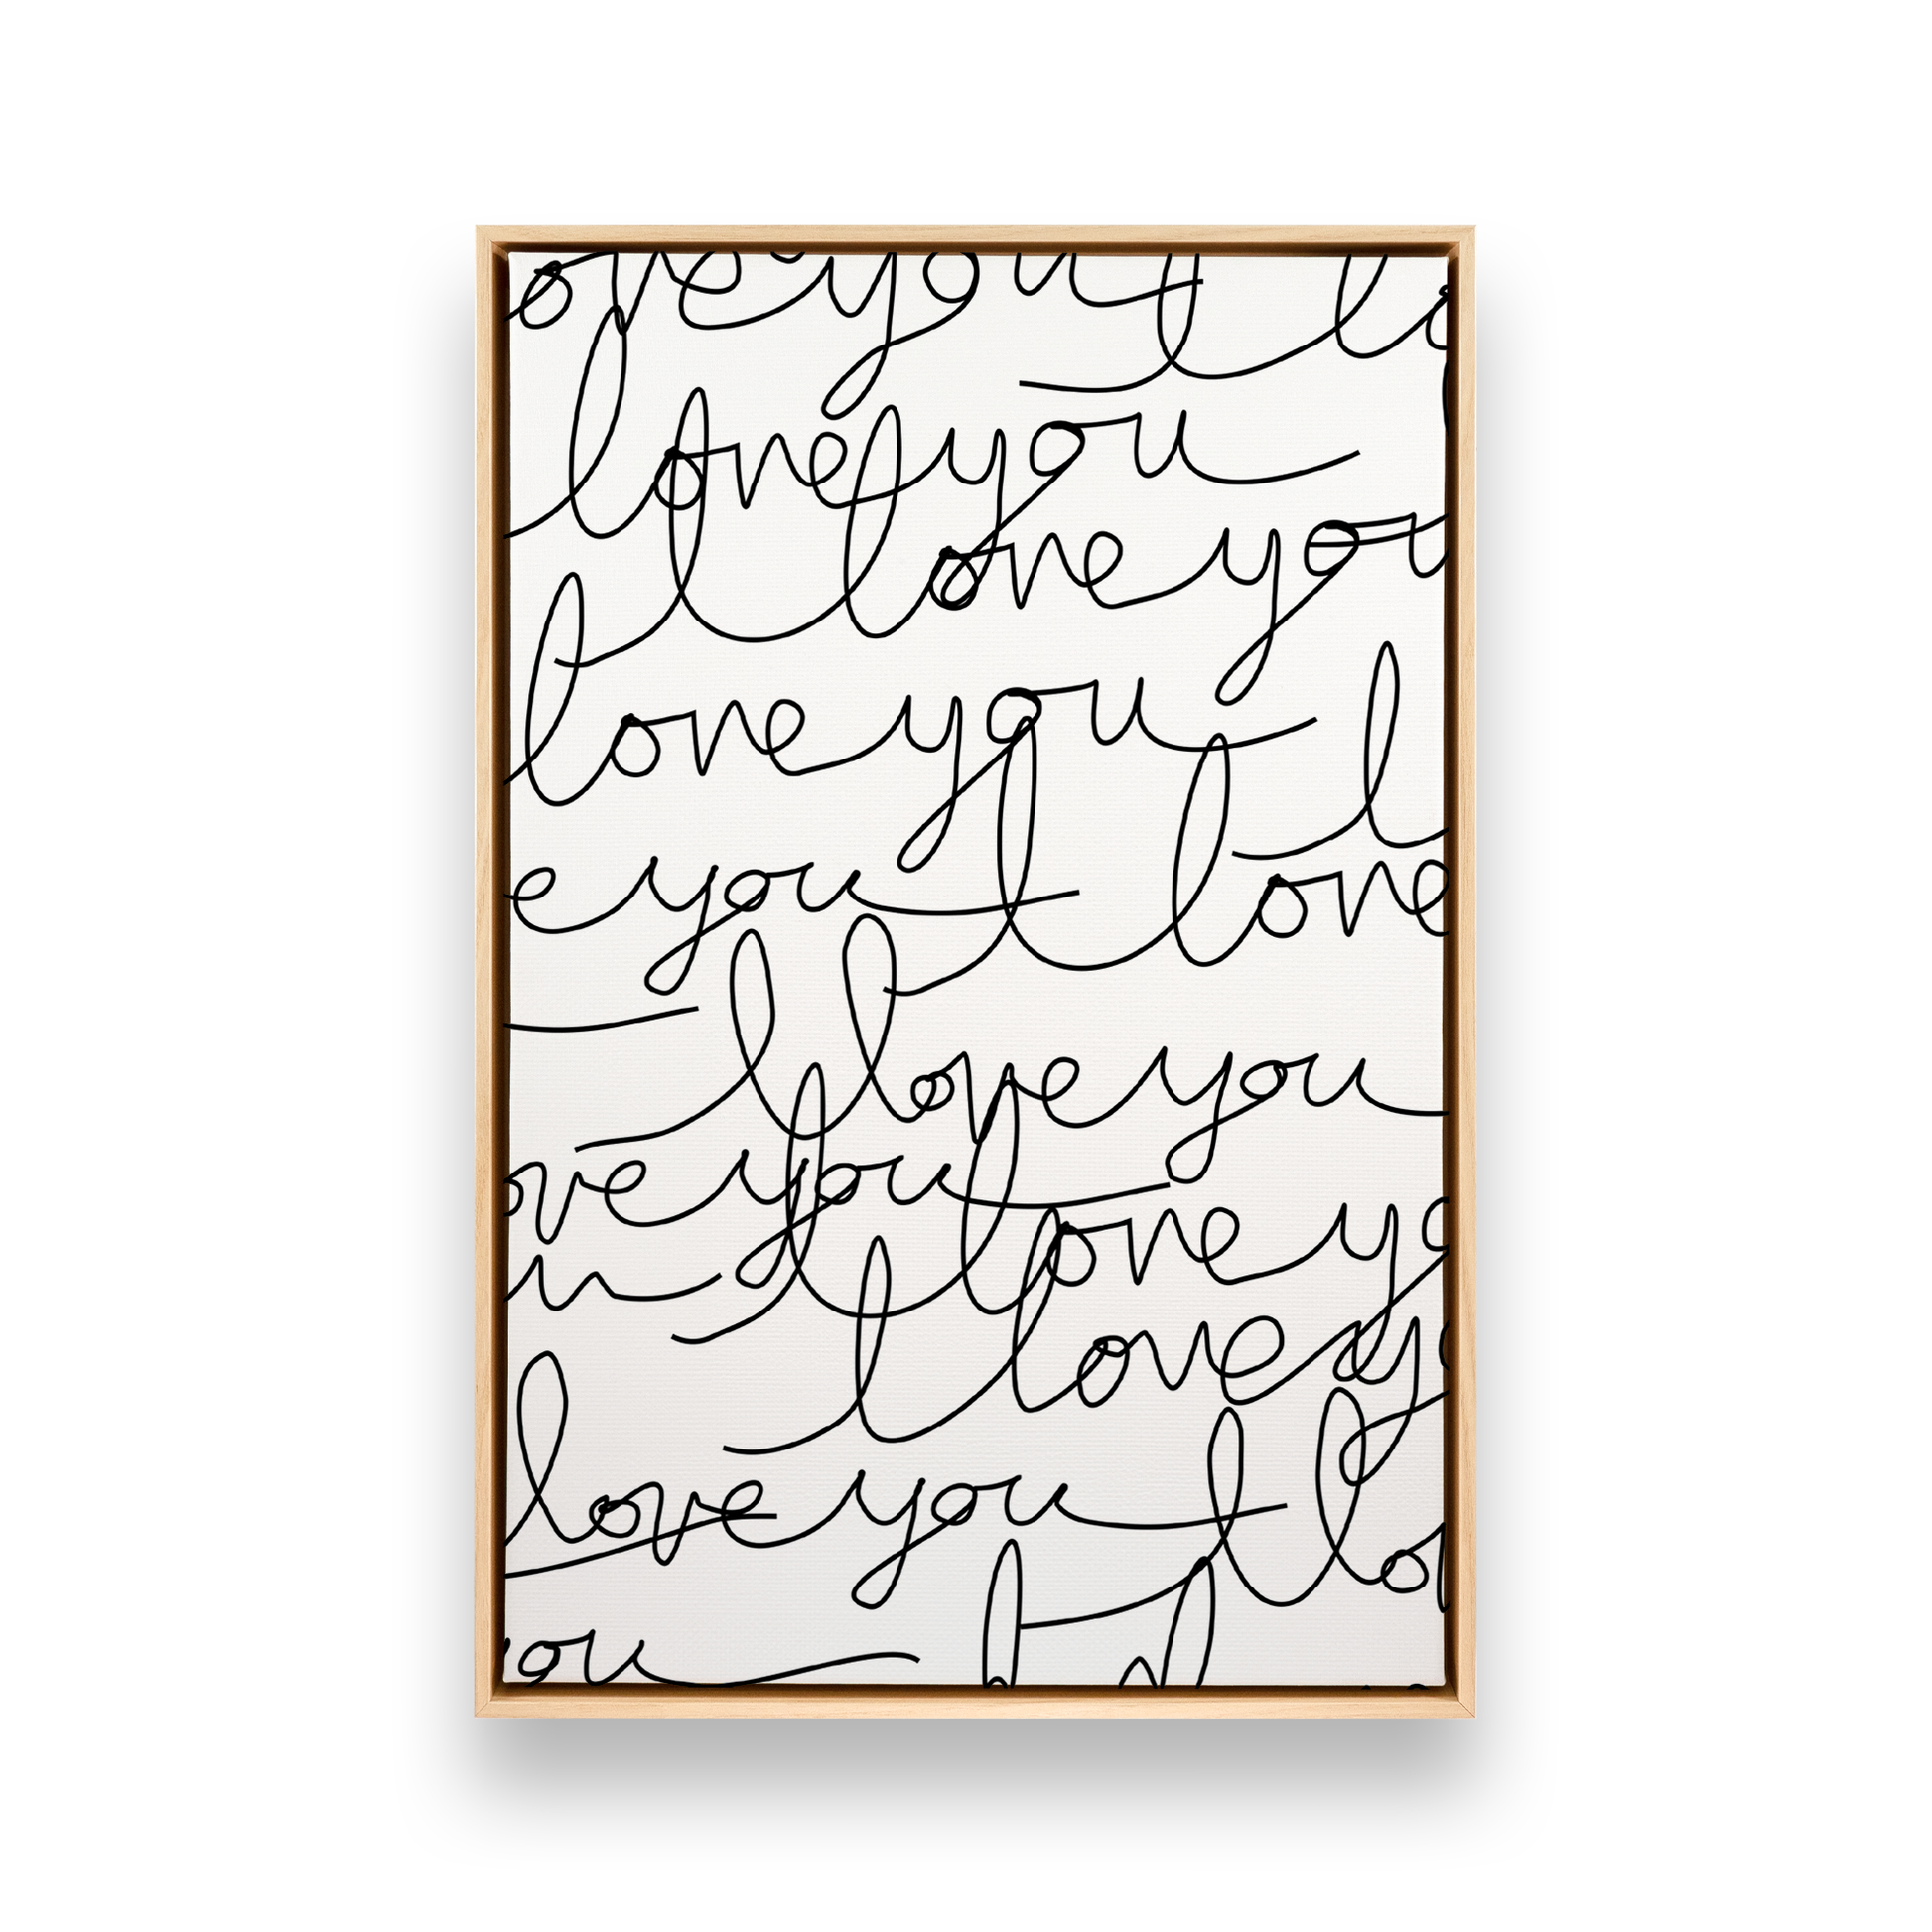 ove you I lo
love you
I love you
love you I
e you I love
I love you
ove you
I love yo
u I love yo
love you I lov
you I